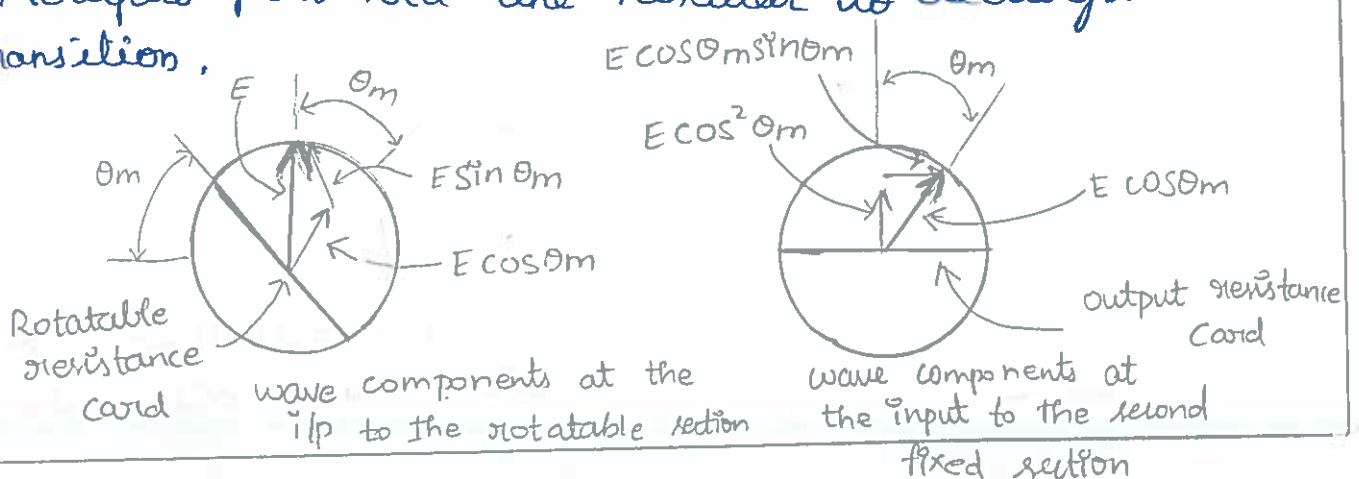 ansition.
E
θm
θm
E sin θm
E cosθm
Rotatable
resistance
card
wave components at the
i/p to the rotatable section
E cosθm sinθm
θm
E cos² θm
E cosθm
output resistance
Card
wave components at
the input to the second
fixed section